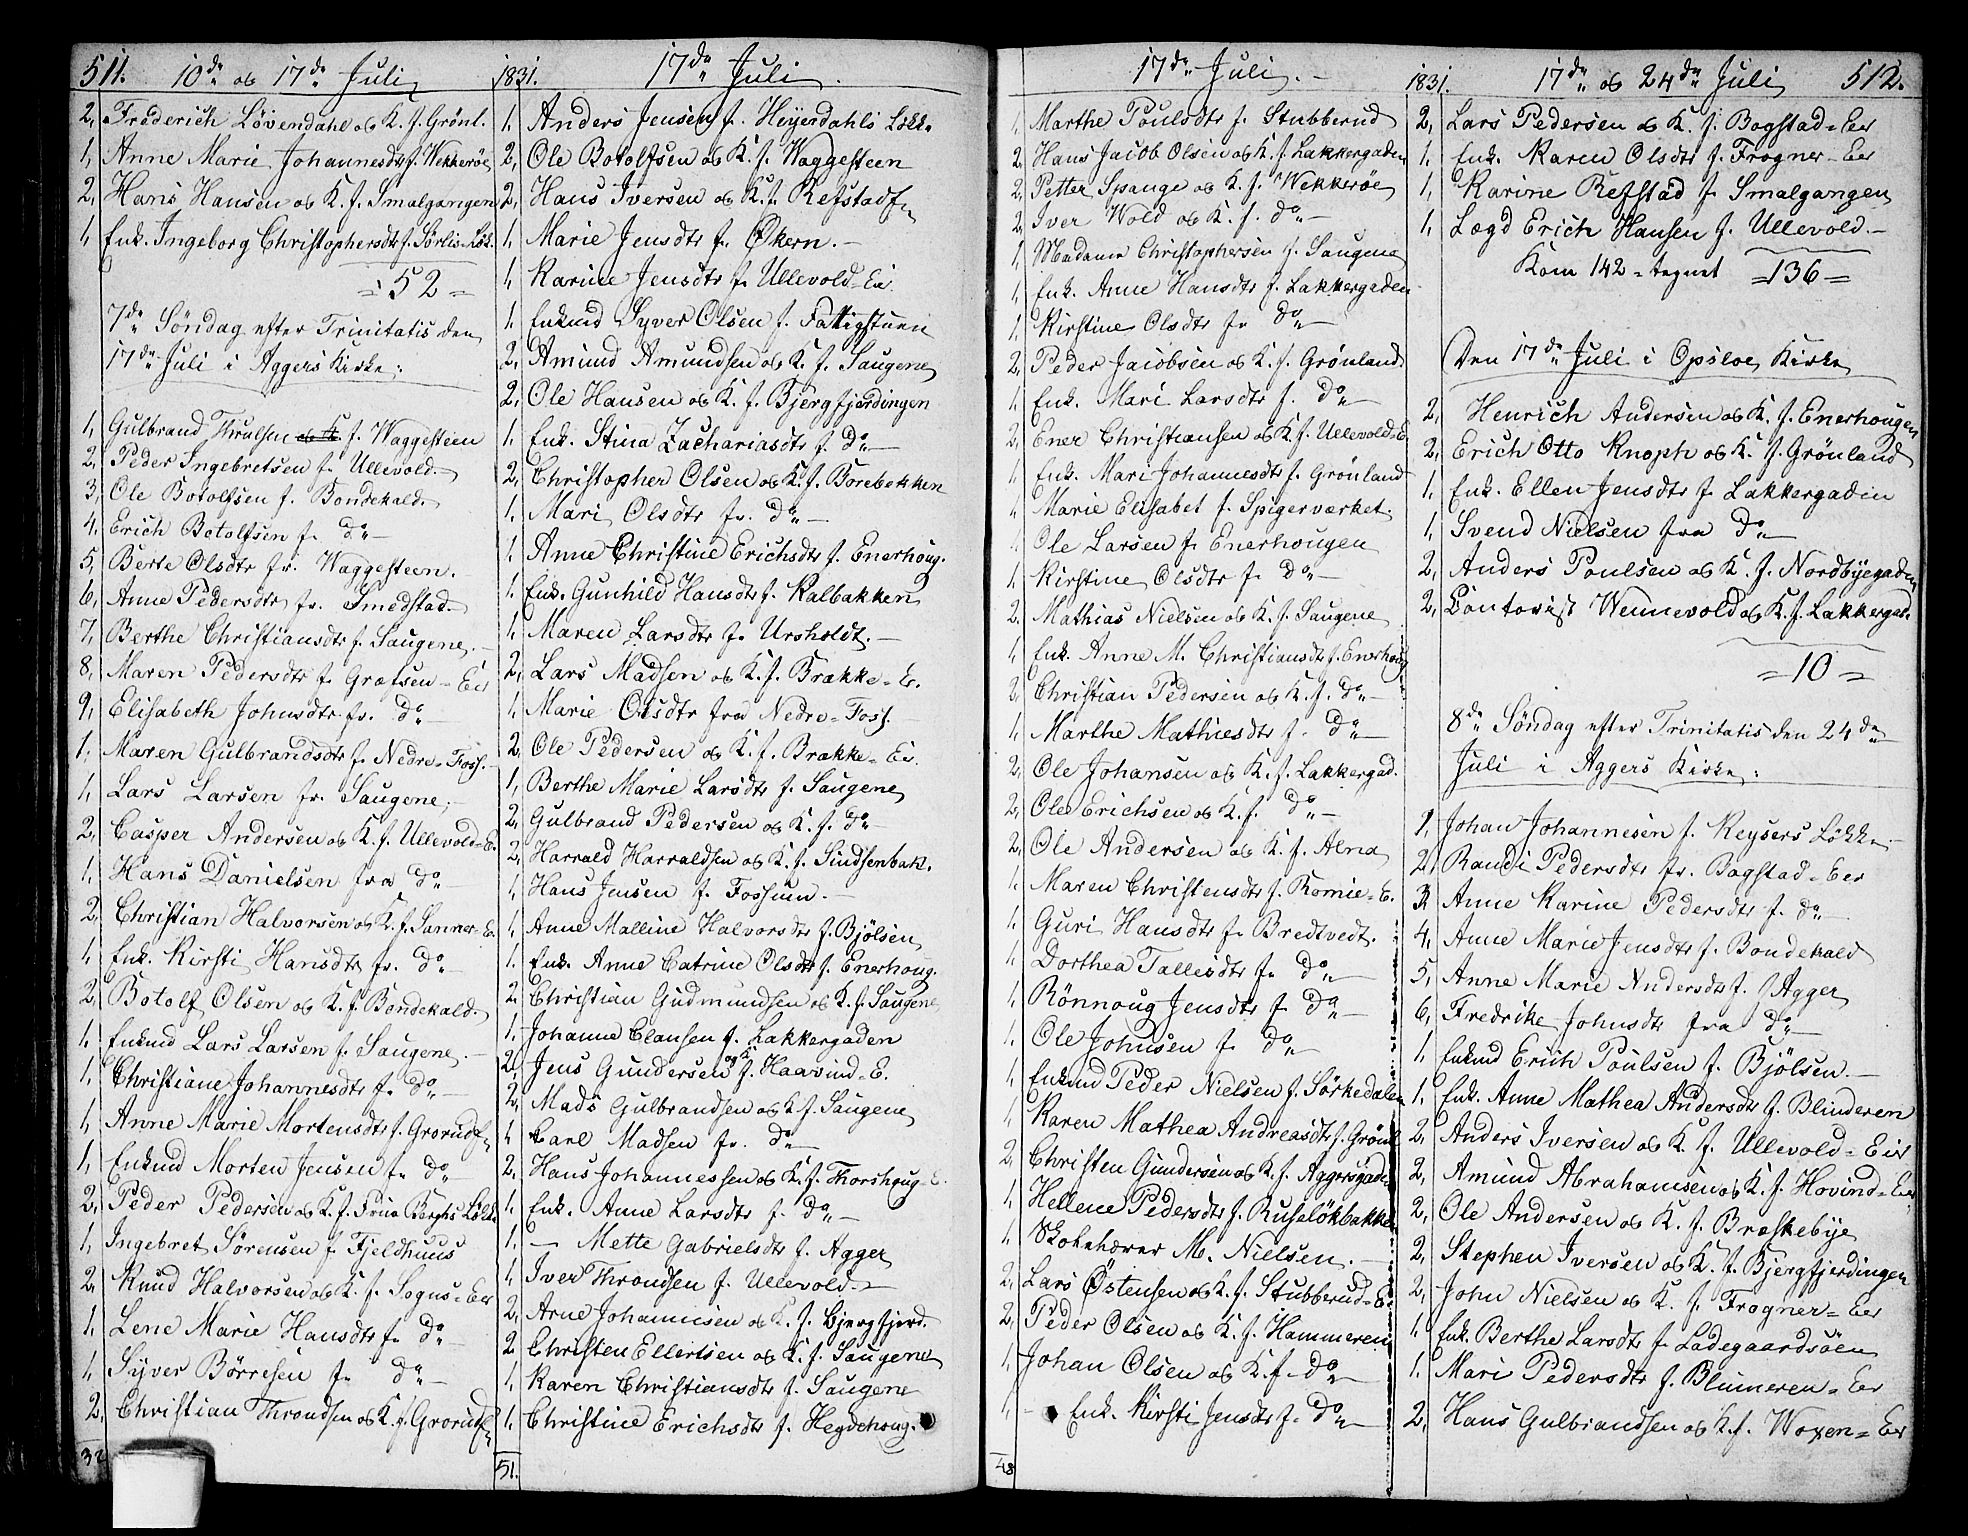 511. 10de og 17de Juli
2, Frederich Lövendahl og K. f. Grönl.
1, Anne Marie Johannesdtr f. Wækkerøe
2, Hans Hansen og K. f. Smalgangen
1, Enk. Ingeborg Christophersdtr f. Sörlis-Løk.
=52=
7de Söndag efter Trinitatis den
17de Juli i Aggers Kirke:
1, Gulbrand Thrulsen og K. f. Waggesteen
2, Peder Ingebretsen fr. Ullevold.
3, Ole Botolfsen f. Bondekald.
4. Erich Botolfsen fr. do
5, Berte Olsdtr fr. Waggesteen.
6, Anne Pedersdtr fr. Smedstad.
7, Berthe Christiansdtr f. Saugene.
8, Maren Pedersdtr f. Grefsen=Eie
9, Elisabeth Johnsdtr fr. do
1, Maren Gulbrandsdtr f. Nedre-Foss.
1, Lars Larsen fr. Saugene,
2, Casper Andersen og K. f. Ullevold=E.
1, Hans Danielsen fra do
2, Christian Halvorsen og K. f. Sanner=E.
1, Enk. Kirsti Hansdtr fr. do
2, Botolf Olsen og K. f. Bondekald.
1, Enkmd Lars Larsen f. Saugene.
1, Christiane Johannesdtr f. do
1, Anne Marie Mortensdtr f. Grorud
1, Enkmd Morten Jensen fr. do
2, Peder Pedersen og K. f. Frue Berghs Løkke
1, Ingebret Sörensen f. Fjeldhuus
2, Knud Halvorsen og K. f. Sogns=Eie
1, Lene Marie Hansdtr fr. do
1, Syver Börresen fr. do
2, Christian Throndsen og K. f. Grorud
32
1831. 17de Juli.
1, Anders Jensen f. Heyerdahls Løkke
2, Ole Botolfsen og K. f. Waggesteen
2, Hans Iversen og K. f. Refstad
1, Marie Jensdtr fr. Økern.
1, Karine Jensdtr fr. Ullevold=Eie
1, Enkmd Syver Olsen f. Fattigstuen
2, Amund Amundsen og K. f. Saugene
2, Ole Hansen og K. f. Bjergfjerdingen
1, Enk. Stina Zachariasdtr f. do
2, Christopher Olsen og K. f. Borebakken
1, Mari Olsdtr fr. do
1. Anne Christine Erichsdtr f. Enerhoug.
1, Enk. Gunhild Hansdtr f. Kalbakken
1, Maren Larsdtr fr. Ursholdt.
2, Lars Madsen og K. f. Brække=E.
1, Marie Olsdtr fra Nedre-Foss.
2, Ole Pedersen og K. f. Brække=Ei.
1, Berthe Marie Larsdtr f. Saugene
2, Gulbrand Pedersen og K. f. do
2, Harrald Harraldsen og K. f. Sindsenbak.
1, Hans Jensen f. Fossum.
1, Anne Malline Halvorsdtr f. Bjölsen
1, Enk. Anne Catrine Olsdtr f. Enerhoug.
2, Christian Gudmundsen og K. f. Saugene
1, Johanne Clausen f. Lakkergaden
2, Jens Gundersen og K. f. Haavind=E.
2, Mads Gulbrandsen og K. f. Saugene
1, Carl Madsen fr. do
2, Hans Johannessen og K. f. Thorshoug-E.
1, Enk. Anne Larsdtr f. do
1, — Mette Gabrielsdtr f. Agger
1, Iver Throndsen f. Ullevold.
2, Arne Johannesen og K. f. Bjergfjerd.
2 Christen Ellertsen og K. f. Saugene
1, Karen Christiansdtr f. Saugene
1, Christine Erichsdtr f. Hegdehoug.
51.
17de Juli.
1, Marthe Poulsdtr f. Stubberud
2, Hans Jacob Olsen og K. f. Lakkergaden
2, Petter Spange og K. f. Wækkerøe
2, Iver Wold og K. f. do
1, Madame Christophersen f. Saugene
1, Enk. Anne Hansdtr f. Lakkergaden
1, Kirstine Olsdtr fr do
2, Peder Jacobsen og K. f. Grønland
1, Enk. Mari Larsdtr f. do
2, Ener Christiansen og K. f. Ullevold=E.
1, Enk. Mari Johannesdtr f. Grönland
1, Marie Elisabet f. Spigerværket.
1, Ole Larsen fr Enerhougen
1, Kirstine Olsdtr f. do
2, Mathias Nielsen og K. f. Saugene
1, Enk. Anne M. Christiansdtr f. Enerhoug
2, Christian Pedersen og K. f. do
1, Marthe Mathiesdtr f. do
2, Ole Johansen og K. f. Lakkergad.
2, Ole Erichsen og K. f. do
2, Ole Andersen og K. f. Alna
1, Maren Christensdtr f. Komie=E.
1, Guri Hansdtr fr Bredtvedt.
1, Dorthea Tallesdtr f. do
1, Rönnoug Jensdtr f do
1, Ole Johnsen f. do
1, Enkmd Peder Nielsen f. Sörkedalen
1, Karen Mathea Andreasdtr f. Grönl
2, Christen Gundersen og K. f. Aggersgade
1, Hellene Pedersdtr f. Ruseløkbakken
1, Skoleholder M. Nielsen.
2, Lars Østensen og K. f. Stubberud=E.
2, Peder Olsen og K. f. Hammeren
1, Johan Olsen og K. f. do
1, — Enk. Kirsti Jensdtr f. do
48
1831. 17de og 24de Juli 512.
2, Lars Pedersen og K. f. Bogstad=Eie
1, Enk. Karen Olsdtr f. Frogner-Eie
1, Karine Refstad f. Smalgangen
1, Lægd Erich Hansen f. Ullevold.
Kom 142=tegnet =136=
Den 17de Juli i Opsloe Kirke
2, Henrich Andersen og K. f. Enerhougen
2, Erich Otto Knoph og K. f. Grönland
1, Enk. Ellen Jensdtr f. Lakkergaden
1, Svend Nielsen fra do
2, Anders Poulsen og K. f. Nordbyegaden
2, Contorist Wennevold og K. f. Lakkergad.
=10=
8de Söndag efter Trinitatis den 24de
Juli i Aggers Kirke:
1, Johan Johannesen f. Keysers Løkke
2, Randi Pedersdtr fr. Bogstad=Eie
3, Anne Karine Pedersdtr f. do
4, Anne Marie Jensdtr f. Bondekald
5, Anne Marie Andersdtr f. Agger
6, Fredrike Johnsdtr fra do
1, Enkmd Erich Poulsen f. Bjölsen.
1, Enk. Anne Mathea Andersdtr f. Blinderen
2, Anders Iversen og K. f. Ullevold=Eie
2, Amund Abrahamsen og K. f. Hovind=Eie
2, Ole Andersen og K. f. Bræskebye
2, Stephen Iversen og K. f. Bjergfjerdingen
2, John Nielsen og K. f. Frogner=Eie
1, Enk. Berthe Larsdtr f. Ladegaardsöen
1, Mari Pedersdtr f. Blinneren=Eie
2, Hans Gulbrandsen og K. f. Woxen=Eie